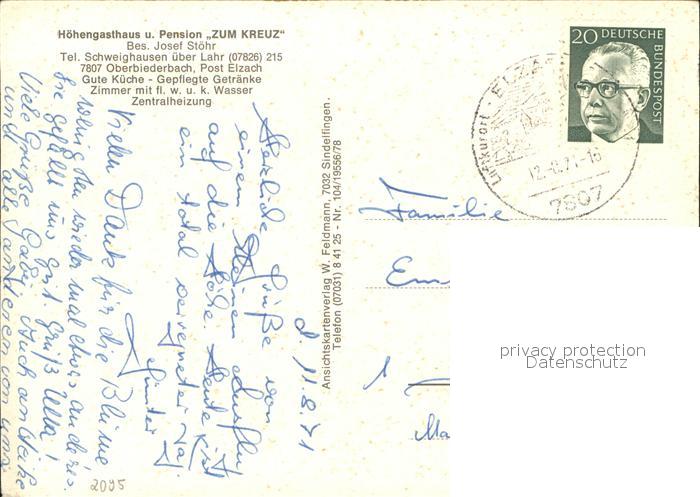 Höhengasthaus u. Pension „ZUM KREUZ"
Bes. Josef Stöhr
Tel. Schweighausen über Lahr (07826) 215
7807 Oberbiederbach, Post Elzach
Gute Küche - Gepflegte Getränke
Zimmer mit fl. w. u. k. Wasser
Zentralheizung
d. 11.8.71
Herzliche Grüße von
einem kleinen Ausflug
auf die Höhe. Heute ist
ein total verregneter Tag.
Günter
Vielen Dank für die Blume
wieder mal etwas anderes.
Sie gefällt uns gut. Gruß Ulla!
Viele Grüße Gabi, auch an Heike
und alle anderen von uns
Ansichtskartenverlag W. Feldmann, 7032 Sindelfingen.
Telefon (07031) 8 41 25 - Nr. 104/19556/78
20 DEUTSCHE
BUNDESPOST
Luftkurort ELZACH
12.-8.71-16
7807
Familie
Em
Ma
privacy protection
Datenschutz
2095